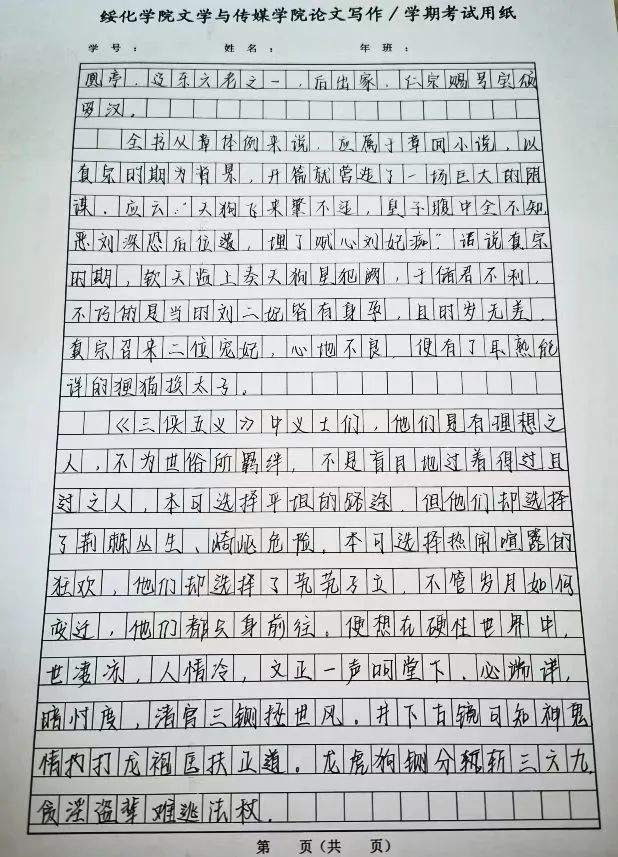 绥化学院文学与传媒学院论文写作/学期考试用纸
学号： 姓名： 年班：
凤亭，辽东六老之一，后出家，仁宗赐号宝颂
罗汉。
全书从章体例来说，应属于章回小说，以
真宗时期为背景，开篇就营造了一场巨大的阴
谋。应云："天狗飞来聚不涩，皇子腹中全不知，
恶刘深恐后位遗，埋了贼心刘妃痴"话说真宗
时期，钦天监上奏天狗星犯阙，于储君不利，
不巧的是当时刘二妃皆有身孕，且时岁无差，
真宗召来二位宠妃，心地不良，便有了耳熟能
详的狸猫换太子。
《三侠五义》中义士们，他们是有理想之
人，不为世俗所羁绊，不是盲目地过着得过且
过之人，本可选择平坦的路途，但他们却选择
了荆棘丛生、崎岖危险。本可选择热闹喧嚣的
狂欢，他们却选择了茕茕孑立，不管岁月如何
变迁，他们都只身前往。便想在硬性世界中，
世凄凉，人情冷，文正一声叫堂下，必端详，
暗忖度，清官三铡拯世风。井下古镜可知神鬼
情，打龙袍匡扶正道。龙虎狗铡分辨斩三六九，
贪淫盗辈难逃法杖。
第 页（共 页）